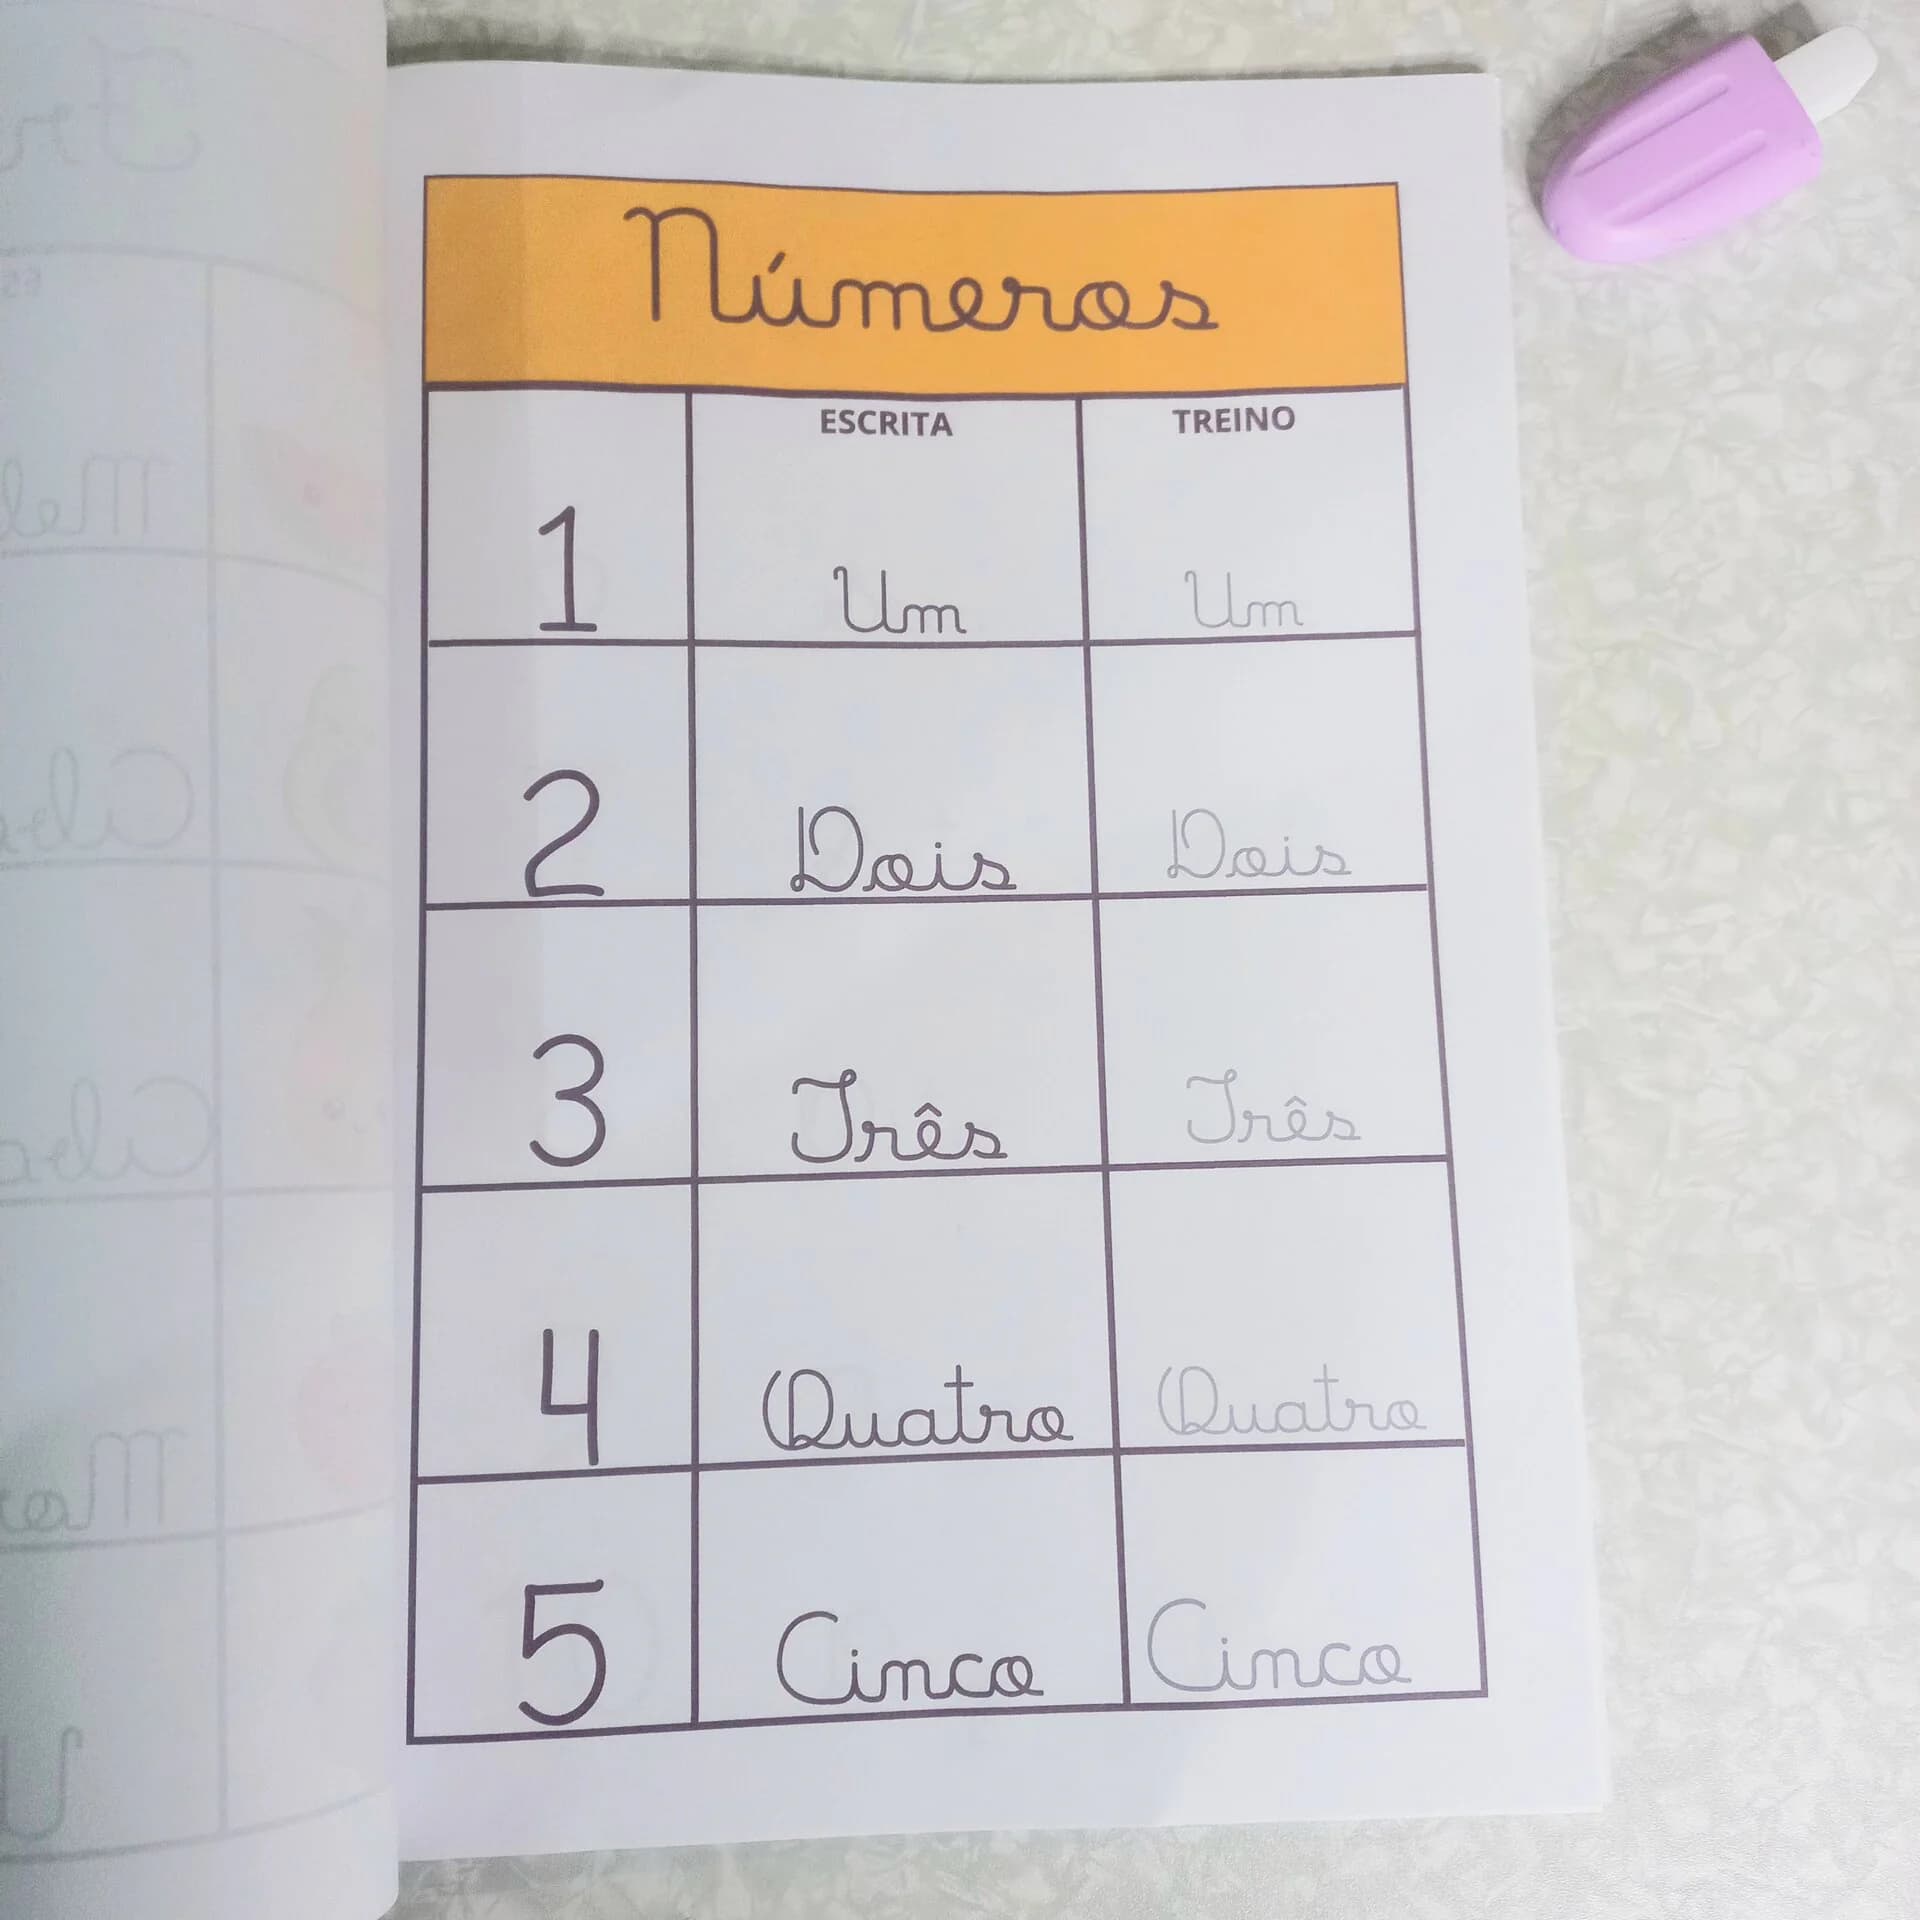 Números
ESCRITA TREINO
1 Um Um
2 Dois Dois
3 Três Três
4 Quatro Quatro
5 Cinco Cinco